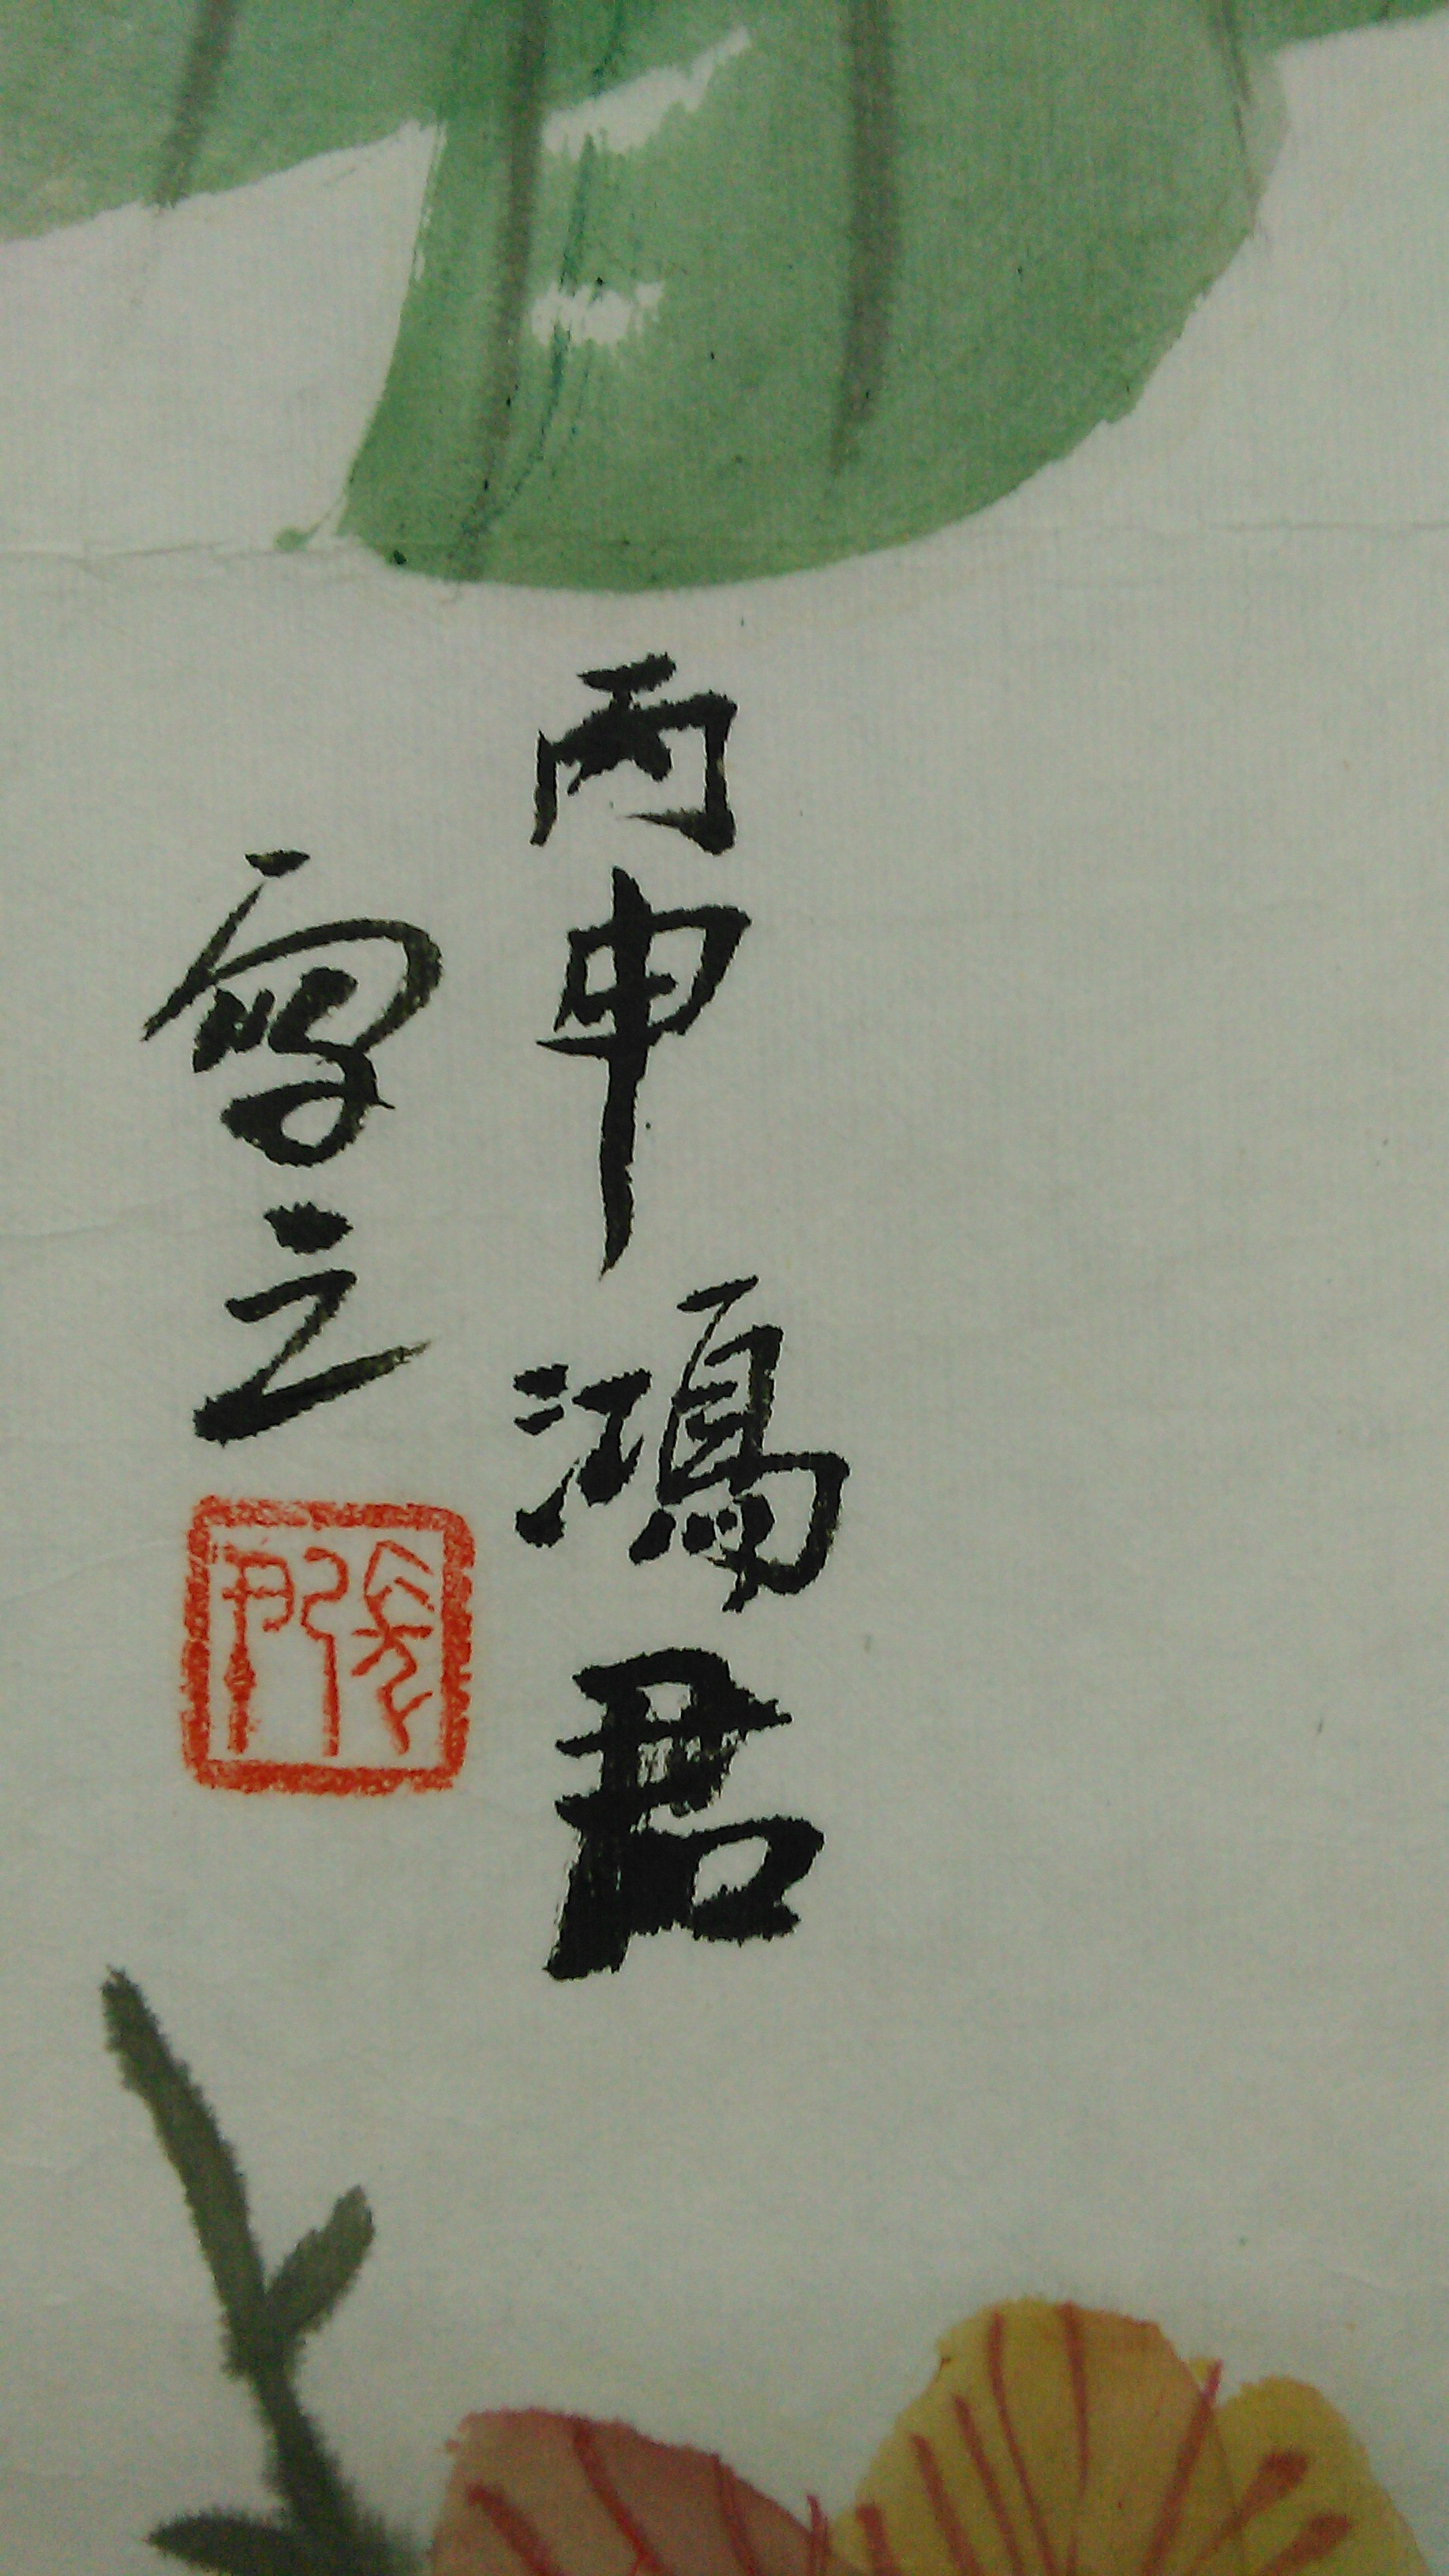 丙申鴻君
寫之
張